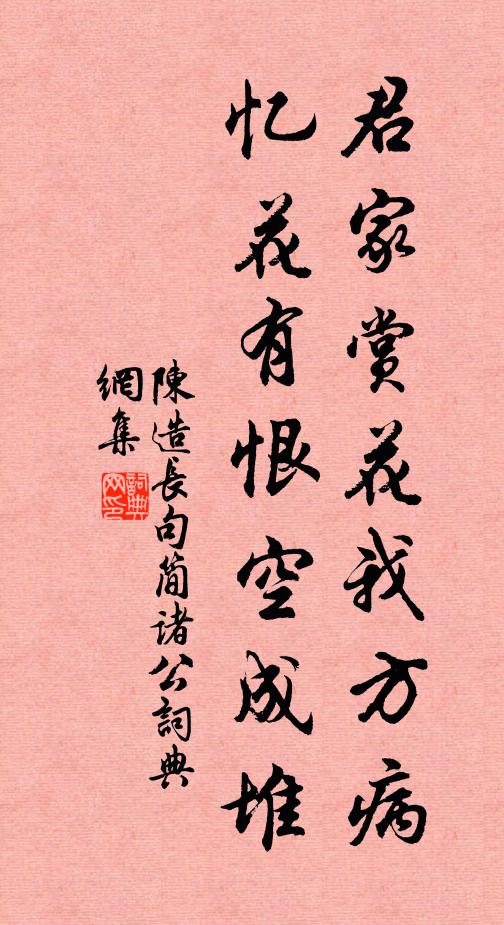 君家赏花我方病
忆花有恨空成堆
陳造長句简诸公詞典
網集
詞典
网印